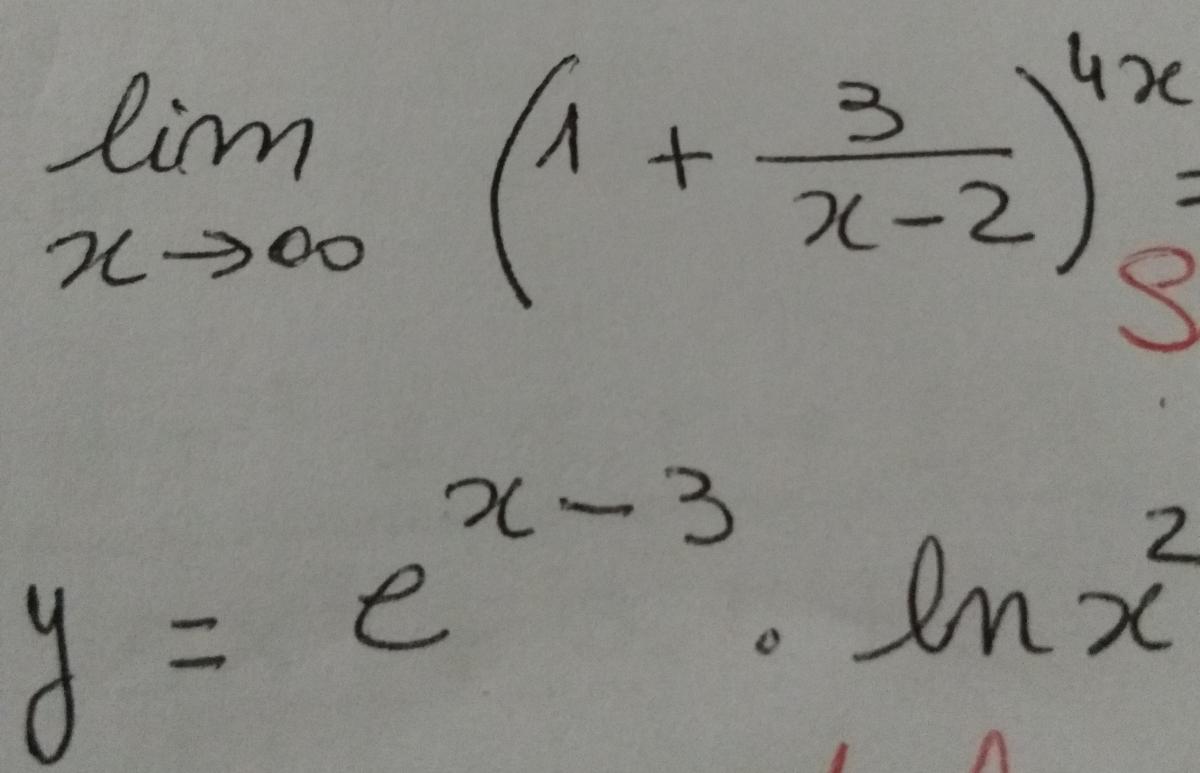 lim x→∞ (1 + 3/(x-2))^4x =
y = e^x-3 . ln x^2